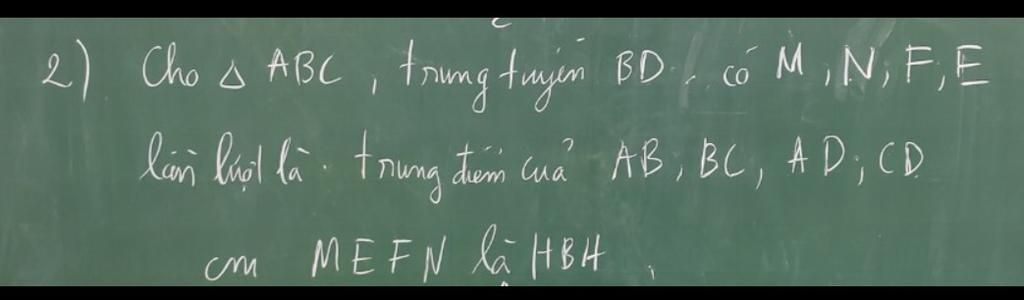 2) Cho Δ ABC, trung tuyến BD. có M, N, F, E
lần lượt là trung điểm của AB, BC, AD; CD
cm MEFN là HBH.